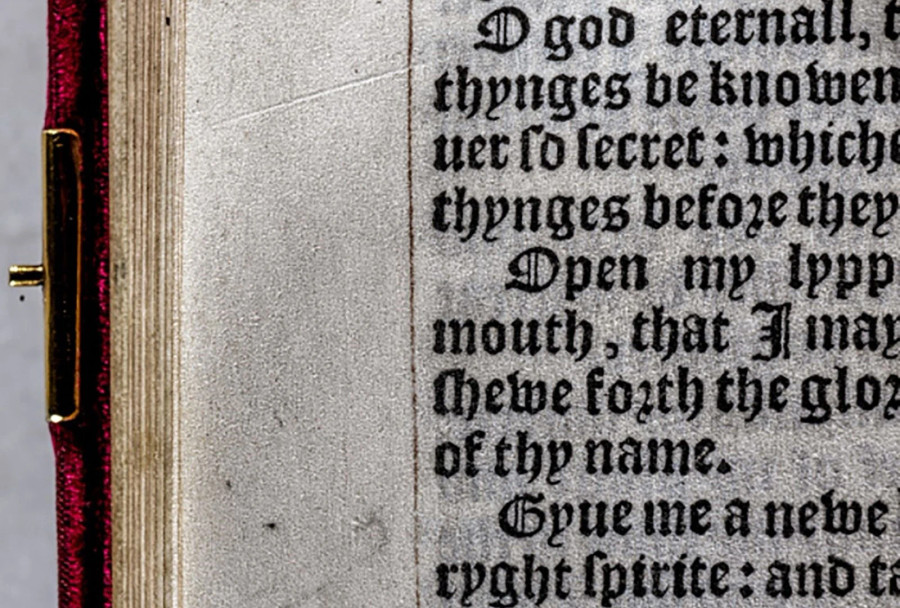 O god eternall, t
thynges be knowen
uer so secret: whiche
thynges before they
Open my lypp
mouth, that I may
shewe forth the glor
of thy name.
Gyue me a newe
ryght spirite: and ta